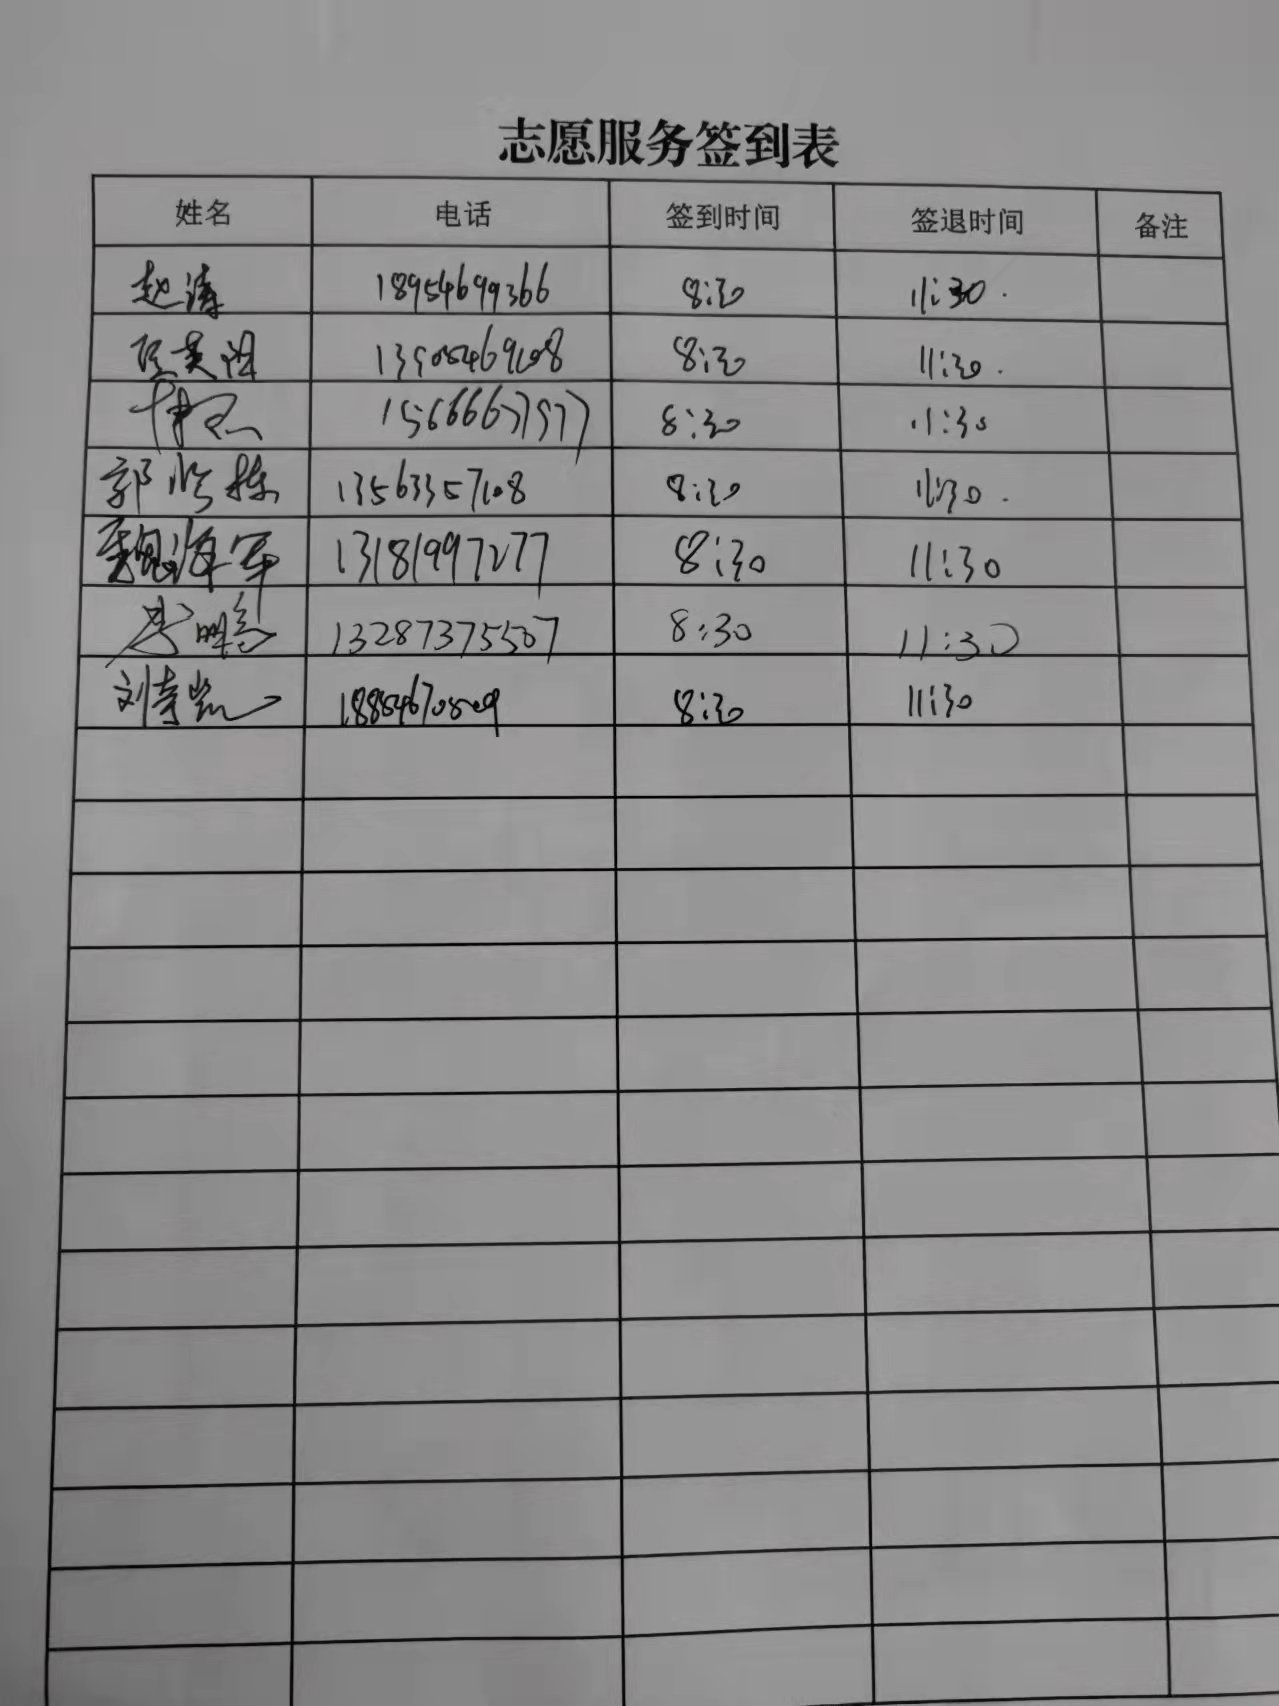 志愿服务签到表
姓名 电话 签到时间 签退时间 备注
赵涛 18954699366 8:30 11:30
13905469108 8:30 11:30
15666637577 8:30 11:30
郭 栋 13563357108 8:30 11:30
魏海军 13181997277 8:30 11:30
李明 13287375507 8:30 11:30
刘奇凯 18854670509 8:30 11:30